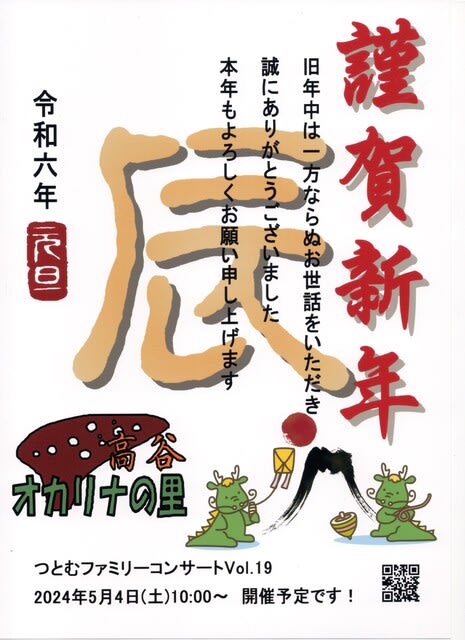 謹賀新年
旧年中は一方ならぬお世話をいただき
誠にありがとうございました
本年もよろしくお願い申し上げます
辰
令和六年
元旦
高谷
オカリナの里
つとむファミリーコンサートVol.19
2024年5月4日(土)10:00～ 開催予定です！